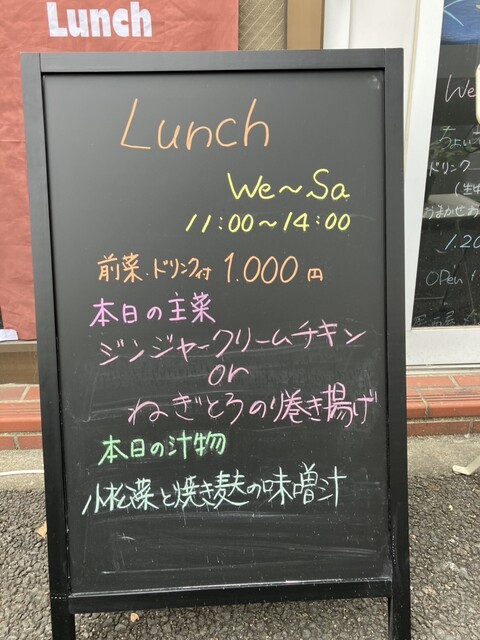 Lunch
Lunch
We~Sa
11:00~14:00
前菜・ドリンク付 1.000円
本日の主菜
ジンジャークリームチキン
or
ねぎとろのり巻き揚げ
本日の汁物
小松菜と焼き麩の味噌汁
We
ちょい
ドリンク
(生中
おまかせお
1.20
OPen